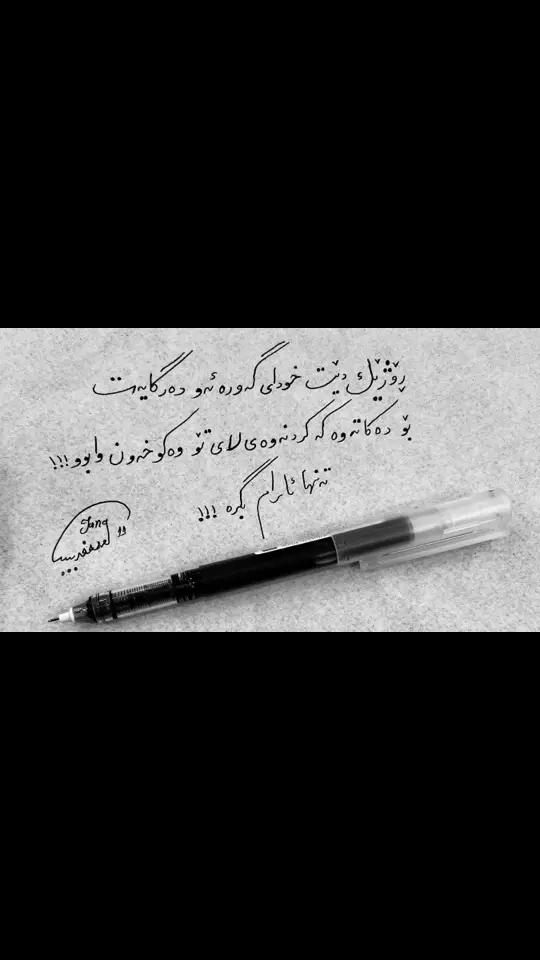 ڕۆژێك دێت خودای گەورە ئەو دەرگایەت
بۆ دەکاتەوە کە کردنەوەی لای تۆ وەکو خەون وابوو!!!
تەنها ئارام بگرە !!!